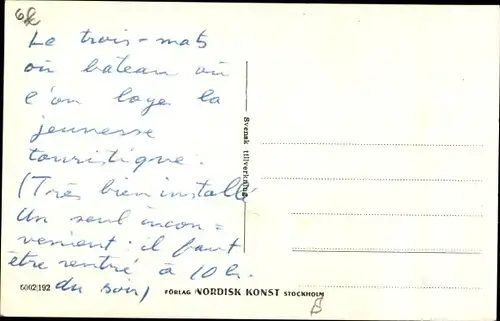 Le trois-mats
où bateau où
l'on loge la
jeunesse
touristique.
(Très bien installé
Un seul incon=
venient: il faut
être rentré à 10h.
du soir)
Svensk tillverkning
6002/192
FÖRLAG NORDISK KONST STOCKHOLM